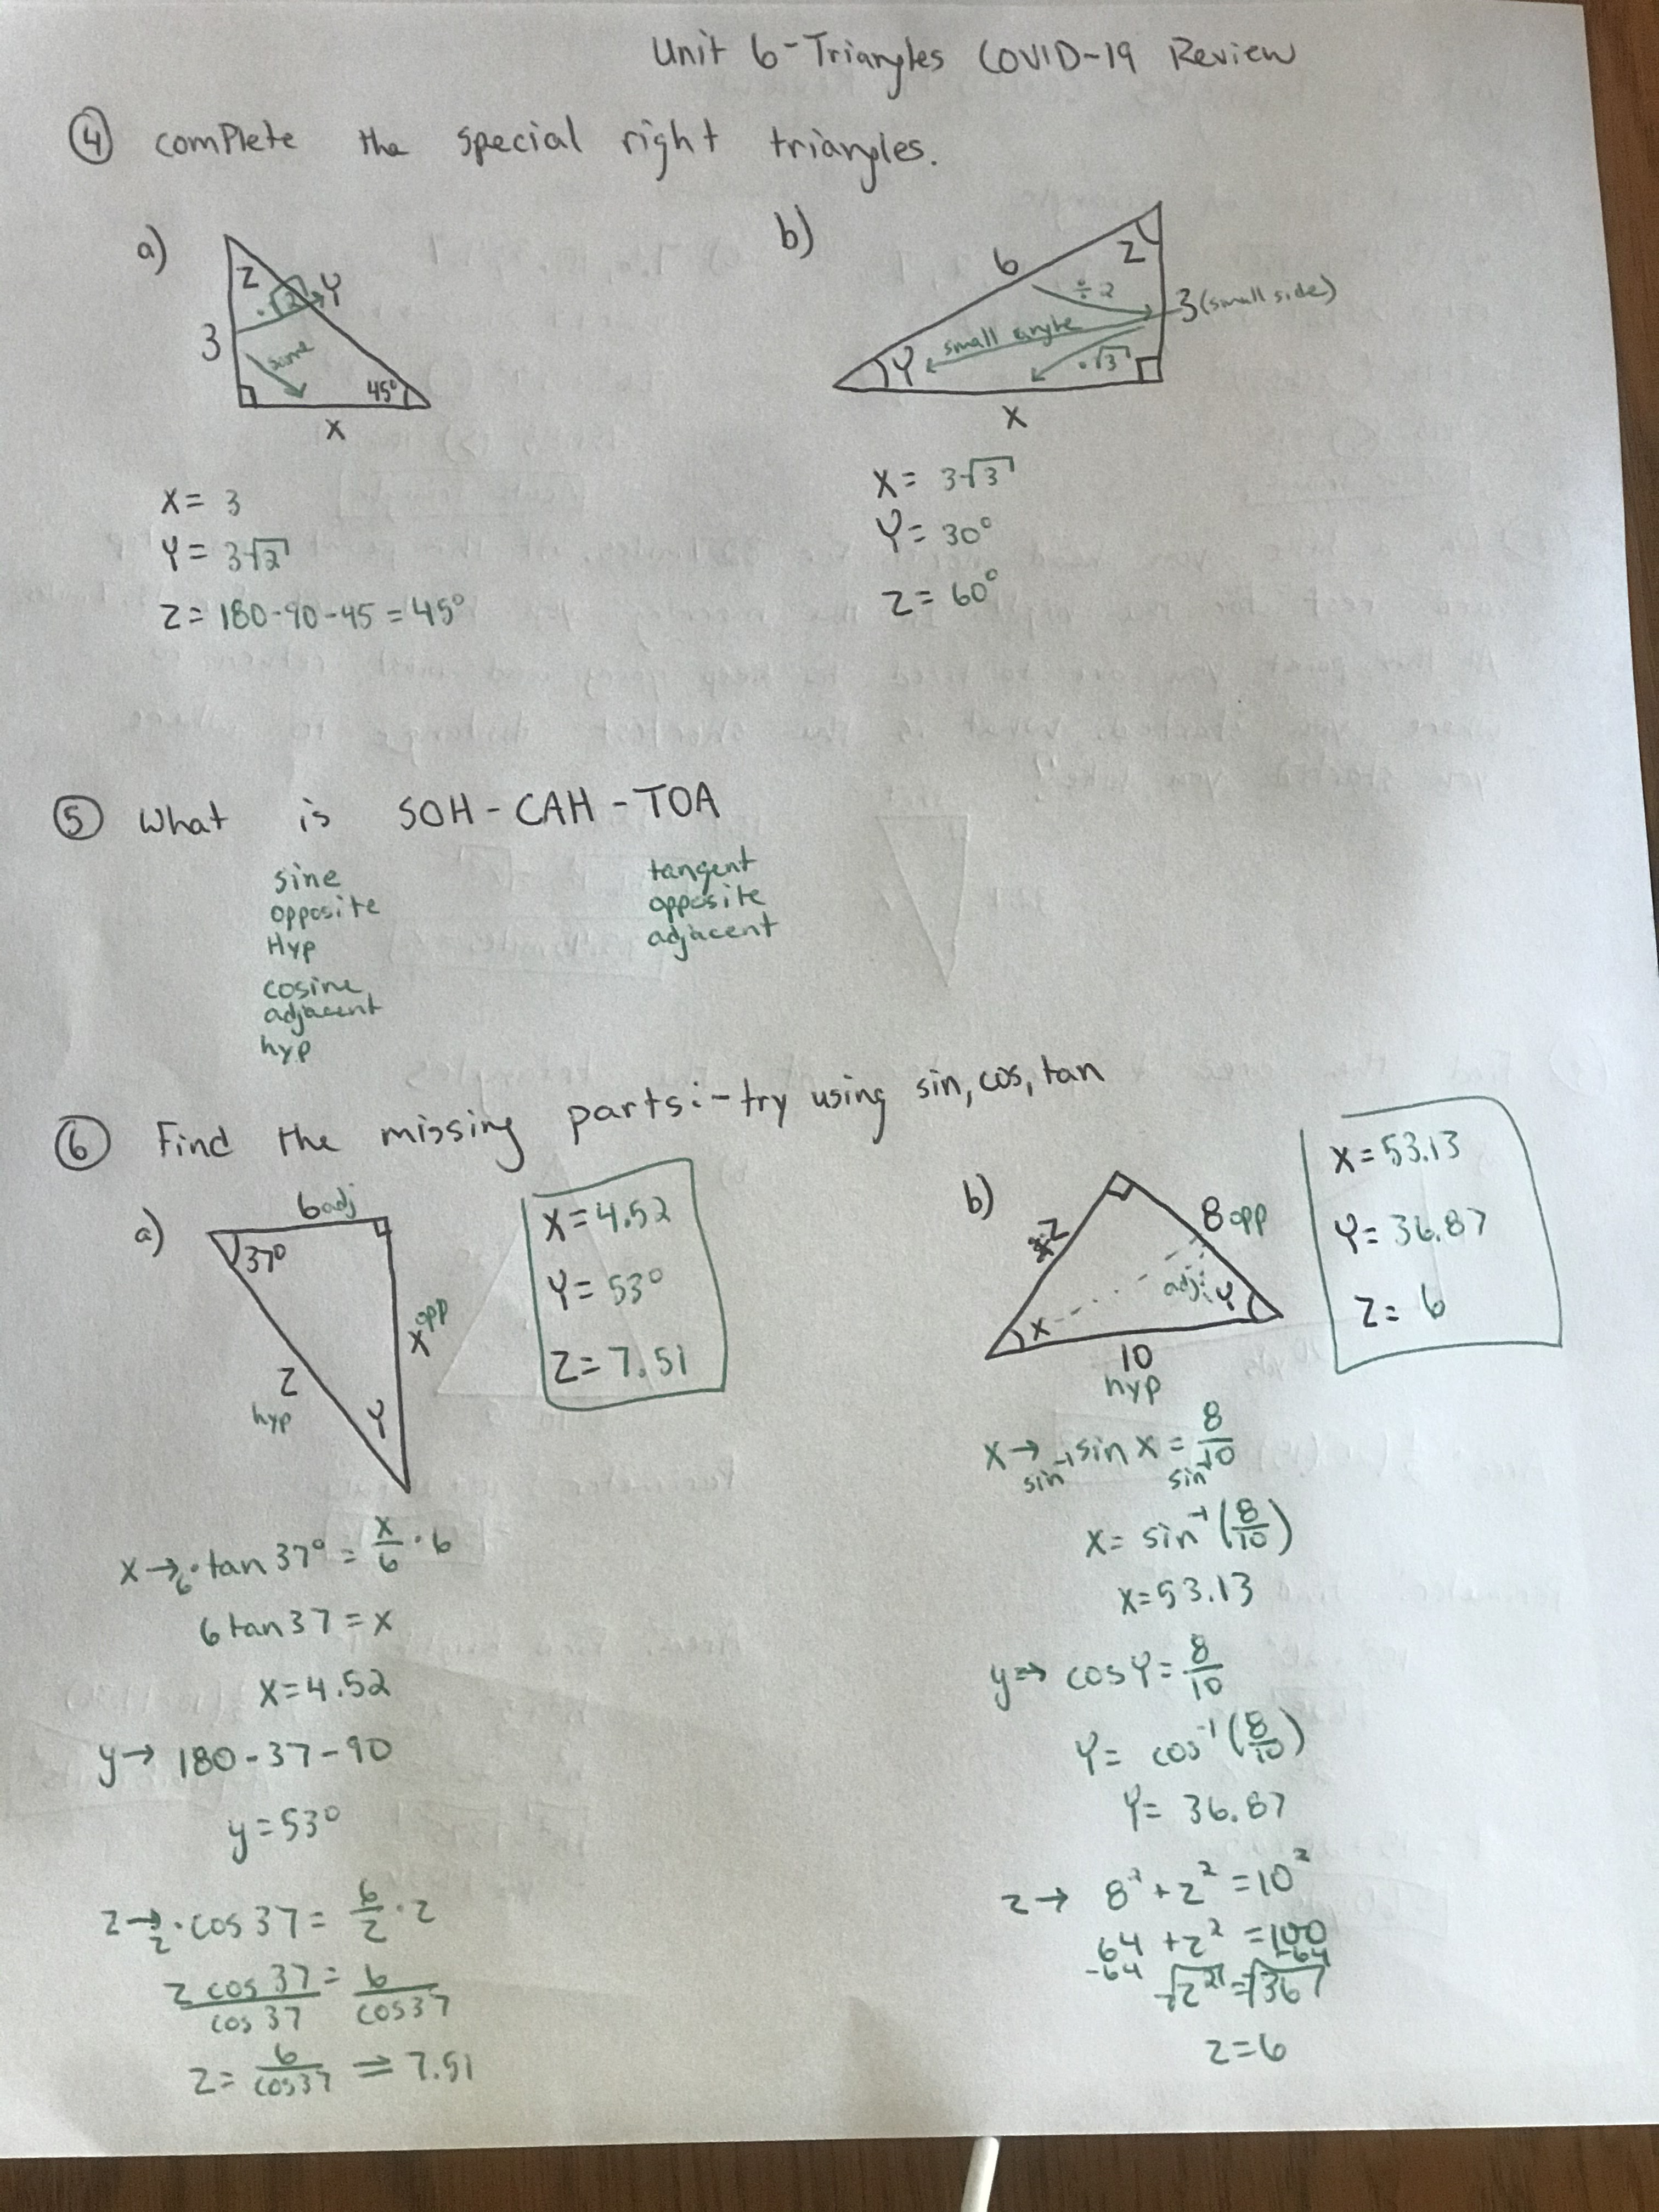 Unit 6 - Triangles COVID-19 Review
④ complete the special right triangles.
a)
Z
·√2
Y
3
same
45°
X
X = 3
Y = 3√2
Z = 180-90-45 = 45°
b)
6
Z
÷2
3 (small side)
small angle
Y
·√3
X
X = 3√3
Y = 30°
Z = 60°
⑤ What is SOH - CAH - TOA
sine
opposite
Hyp
cosine
adjacent
hyp
tangent
opposite
adjacent
⑥ Find the missing parts: - try using sin, cos, tan
a)
6 adj
37°
opp
X
Z
hyp
Y
X = 4.52
Y = 53°
Z = 7.51
X → 6 · tan 37° = x/6 · 6
6 tan 37 = x
X = 4.52
y → 180 - 37 - 90
y = 53°
Z → z · cos 37 = 6/z · z
z cos 37 / cos 37 = 6 / cos 37
Z = 6/cos37 ⇒ 7.51
b)
Z
8 opp
adj
Y
X
10
hyp
X = 53.13
Y = 36.87
Z = 6
X → sin⁻¹ sin X = 8/10 sin⁻¹
X = sin⁻¹(8/10)
X = 53.13
y → cos Y = 8/10
Y = cos⁻¹(8/10)
Y = 36.87
Z → 8² + z² = 10²
64 + z² = 100
-64 -64
√z² = √36
z = 6